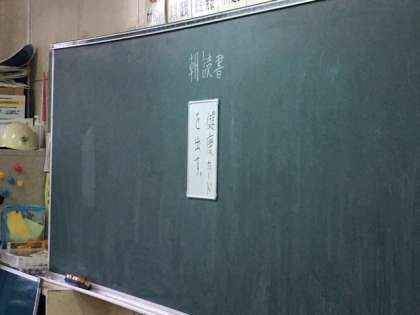 朝読書
健康カード
を出す。